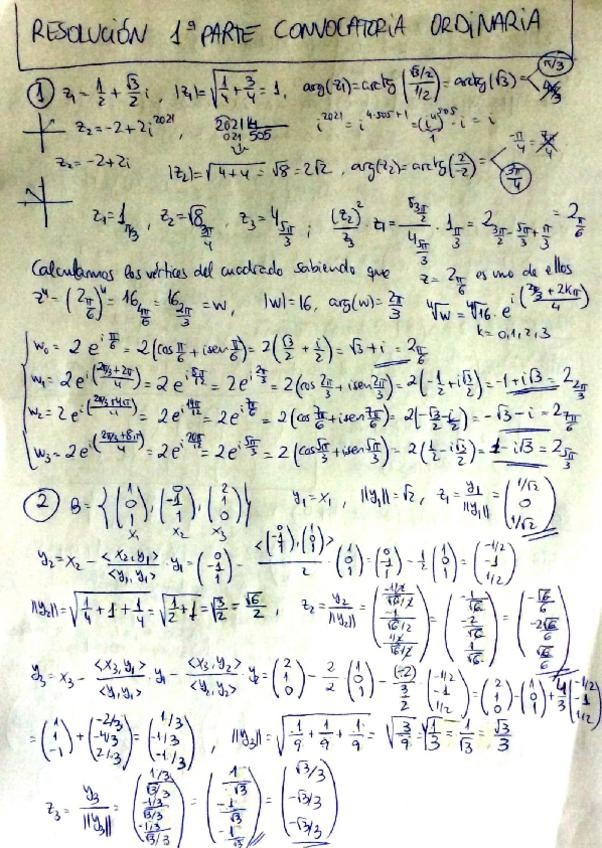 RESOLUCIÓN 1ª PARTE CONVOCATORIA ORDINARIA
① z₁ = 1/2 + √3/2 i, |z₁| = √(1/4 + 3/4) = 1, arg(z₁) = arctg((√3/2)/(1/2)) = arctg(√3) = π/3
z₂ = -2 + 2i^2021, 2021 |4 021 505 1 i^2021 = i^(4·505+1) = (i⁴)^505 · i = i
z₂ = -2 + 2i |z₂| = √(4+4) = √8 = 2√2, arg(z₂) = arctg(2/-2) = -π/4 3π/4
z₁ = 1_(π/3), z₂ = √8_(3π/4), z₃ = 4_(5π/3); (z₂)²/z₃ · z₁ = 8_(3π/2)/4_(5π/3) · 1_(π/3) = 2_(3π/2 - 5π/3 + π/3) = 2_(π/6)
Calculamos los vértices del cuadrado sabiendo que z = 2_(π/6) es uno de ellos
z⁴ = (2_(π/6))⁴ = 16_(4π/6) = 16_(2π/3) = w, |w| = 16, arg(w) = 2π/3 ⁴√w = ⁴√16 · e^(i((2π/3 + 2kπ)/4))
k = 0,1,2,3
w₀ = 2e^(iπ/6) = 2(cos π/6 + i sen π/6) = 2(√3/2 + i/2) = √3 + i = 2_(π/6)
w₁ = 2e^(i((2π/3+2π)/4)) = 2e^(i8π/12) = 2e^(i2π/3) = 2(cos 2π/3 + i sen 2π/3) = 2(-1/2 + i√3/2) = -1 + i√3 = 2_(2π/3)
w₂ = 2e^(i((2π/3+4π)/4)) = 2e^(i14π/12) = 2e^(i7π/6) = 2(cos 7π/6 + i sen 7π/6) = 2(-√3/2 - i/2) = -√3 - i = 2_(7π/6)
w₃ = 2e^(i((2π/3+8π)/4)) = 2e^(i20π/12) = 2e^(i5π/3) = 2(cos 5π/3 + i sen 5π/3) = 2(1/2 - i√3/2) = 1 - i√3 = 2_(5π/3)
② B = {(1, 0, 1), (0, -1, 1), (2, 1, 0)} x₁ x₂ x₃ y₁ = x₁, ||y₁|| = √2, z₁ = y₁/||y₁|| = (1/√2, 0, 1/√2)
y₂ = x₂ - <x₂,y₁>/<y₁,y₁> · y₁ = (0, -1, 1) - <(0, -1, 1), (1, 0, 1)>/2 · (1, 0, 1) = (0, -1, 1) - 1/2 · (1, 0, 1) = (-1/2, -1, 1/2)
||y₂|| = √(1/4 + 1 + 1/4) = √(1/2 + 1) = √(3/2) = √6/2, z₂ = y₂/||y₂|| = ((-1/2)/(√6/2), -1/(√6/2), (1/2)/(√6/2)) = (-1/√6, -2/√6, 1/√6) = (-√6/6, -2√6/6, √6/6)
y₃ = x₃ - <x₃,y₁>/<y₁,y₁> · y₁ - <x₃,y₂>/<y₂,y₂> · y₂ = (2, 1, 0) - 2/2 · (1, 0, 1) - (-2)/(3/2) · (-1/2, -1, 1/2) = (2, 1, 0) - (1, 0, 1) + 4/3 (-1/2, -1, 1/2)
= (1, 1, -1) + (-2/3, -4/3, 2/3) = (1/3, -1/3, -1/3), ||y₃|| = √(1/9 + 1/9 + 1/9) = √(3/9) = √(1/3) = 1/√3 = √3/3
z₃ = y₃/||y₃|| = ((1/3)/(√3/3), (-1/3)/(√3/3), (-1/3)/(√3/3)) = (1/√3, -1/√3, -1/√3) = (√3/3, -√3/3, -√3/3)